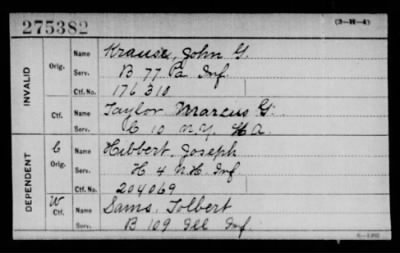 275382
(3-H-4)
INVALID
Orig.
Name Krause, John G.
Serv. B 77 Pa Inf.
Ctf. No. 176310
Ctf.
Name Taylor Marcus G.
Serv. C 10 N.Y. H A.
DEPENDENT
C
Orig.
Name Hibbert, Joseph
Serv. H 4 N.H. Inf
Ctf. No. 204069
W
Ctf.
Name Sams, Tolbert
Serv. B 109 Ill Inf.